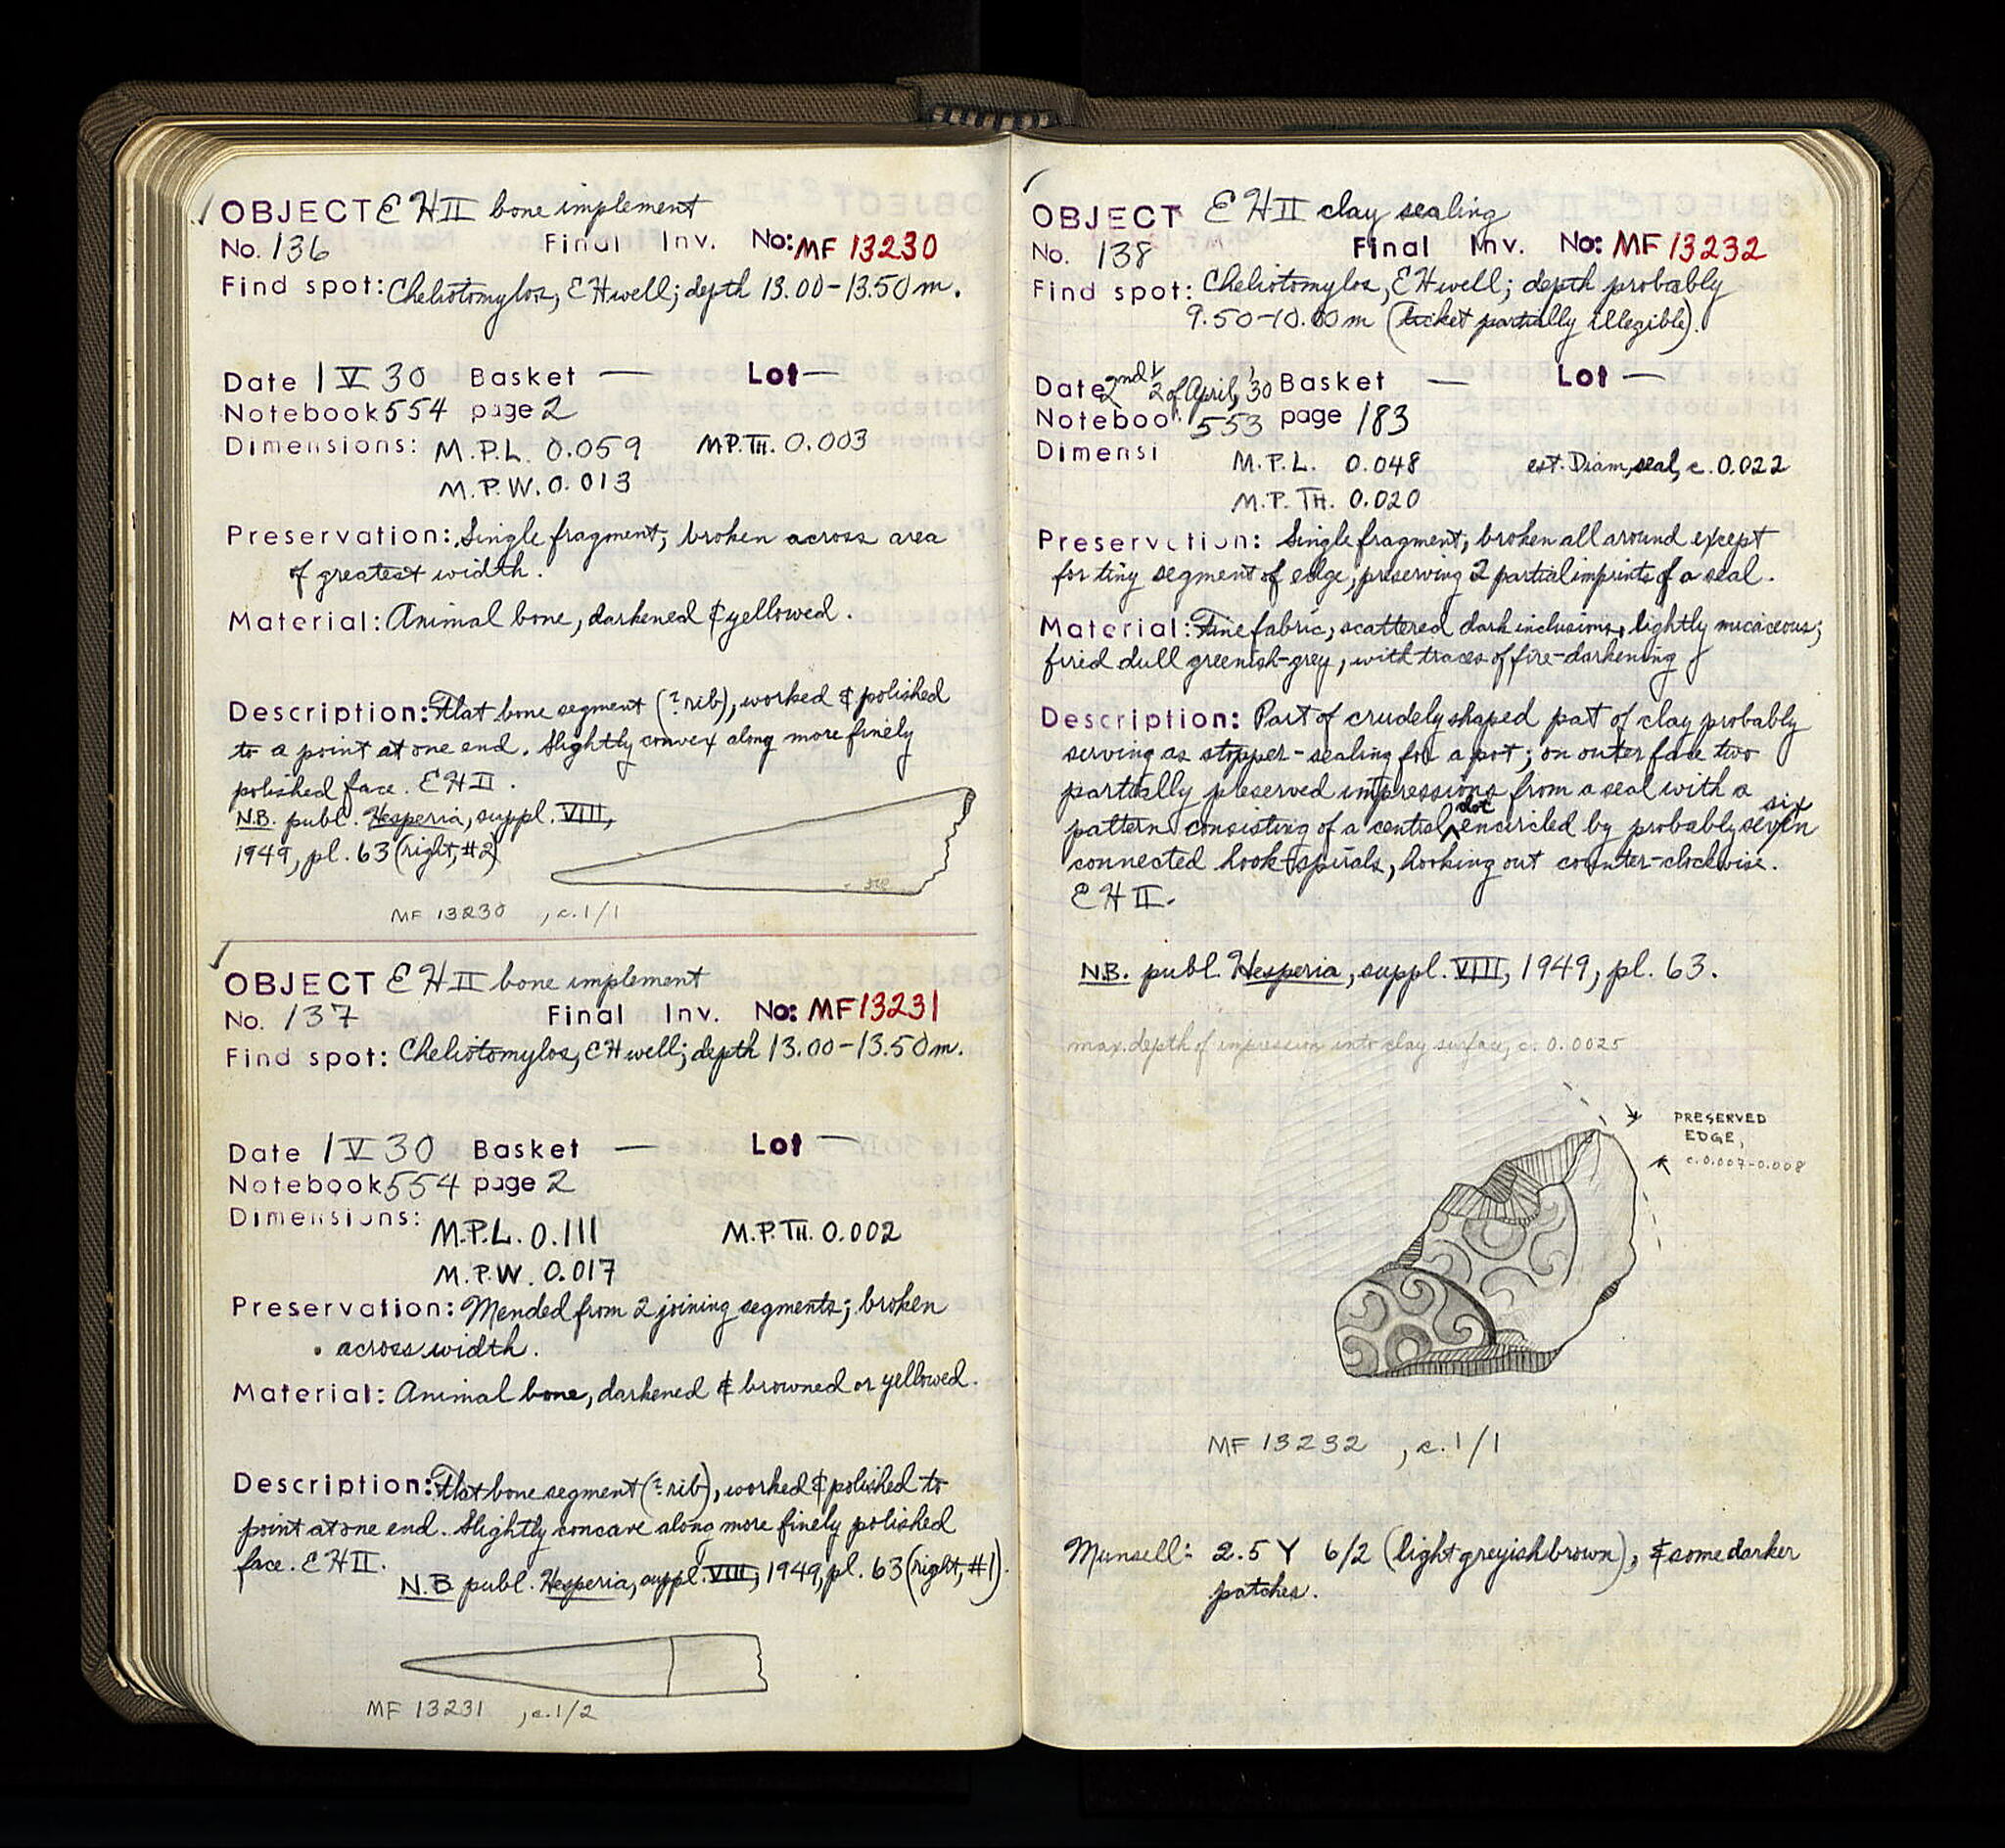 OBJECT EH II bone implement
No. 136 Final Inv. No: MF 13230
Find spot: Cheliotomylos, EH well; depth 13.00-13.50 m.
Date 1 V 30 Basket — Lot —
Notebook 554 page 2
Dimensions: M.P.L. 0.059 M.P.TH. 0.003
M.P.W. 0.013
Preservation: Single fragment; broken across area
of greatest width.
Material: Animal bone, darkened & yellowed.
Description: Flat bone segment (? rib), worked & polished
to a point at one end. Slightly convex along more finely
polished face. EH II.
N.B. publ. Hesperia, suppl. VIII,
1949, pl. 63 (right, #2)
MF 13230 , c. 1/1
OBJECT EH II bone implement
No. 137 Final Inv. No: MF 13231
Find spot: Cheliotomylos, EH well; depth 13.00-13.50 m.
Date 1 V 30 Basket — Lot —
Notebook 554 page 2
Dimensions: M.P.L. 0.111 M.P.TH. 0.002
M.P.W. 0.017
Preservation: Mended from 2 joining segments; broken
across width.
Material: Animal bone, darkened & browned or yellowed.
Description: Flat bone segment (? rib), worked & polished to
point at one end. Slightly concave along more finely polished
face. EH II.
N.B. publ. Hesperia, suppl. VIII, 1949, pl. 63 (right, #1).
MF 13231 , c. 1/2
OBJECT EH II clay sealing
No. 138 Final Inv. No: MF 13232
Find spot: Cheliotomylos, EH well; depth probably
9.50-10.00 m (ticket partially illegible).
Date 2nd 1/2 of April, '30 Basket — Lot —
Noteboo 553 page 183
Dimensi M.P.L. 0.048 est. Diam, seal, c. 0.022
M.P.TH. 0.020
Preservation: Single fragment, broken all around except
for tiny segment of edge, preserving 2 partial imprints of a seal.
Material: Fine fabric, scattered dark inclusions, lightly micaceous;
fired dull greenish-grey, with traces of fire-darkening
Description: Part of crudely shaped pat of clay probably
serving as stopper-sealing for a pot; on outer face two
partially preserved impressions from a seal with a
pattern consisting of a central dot encircled by probably seven six
connected hook-spirals, hooking out counter-clockwise.
EH II.
N.B. publ. Hesperia, suppl. VIII, 1949, pl. 63.
max. depth of impression into clay surface, c. 0.0025
PRESERVED
EDGE,
c. 0.007-0.008
MF 13232 , c. 1/1
Munsell: 2.5 Y 6/2 (light greyish brown), & some darker
patches.